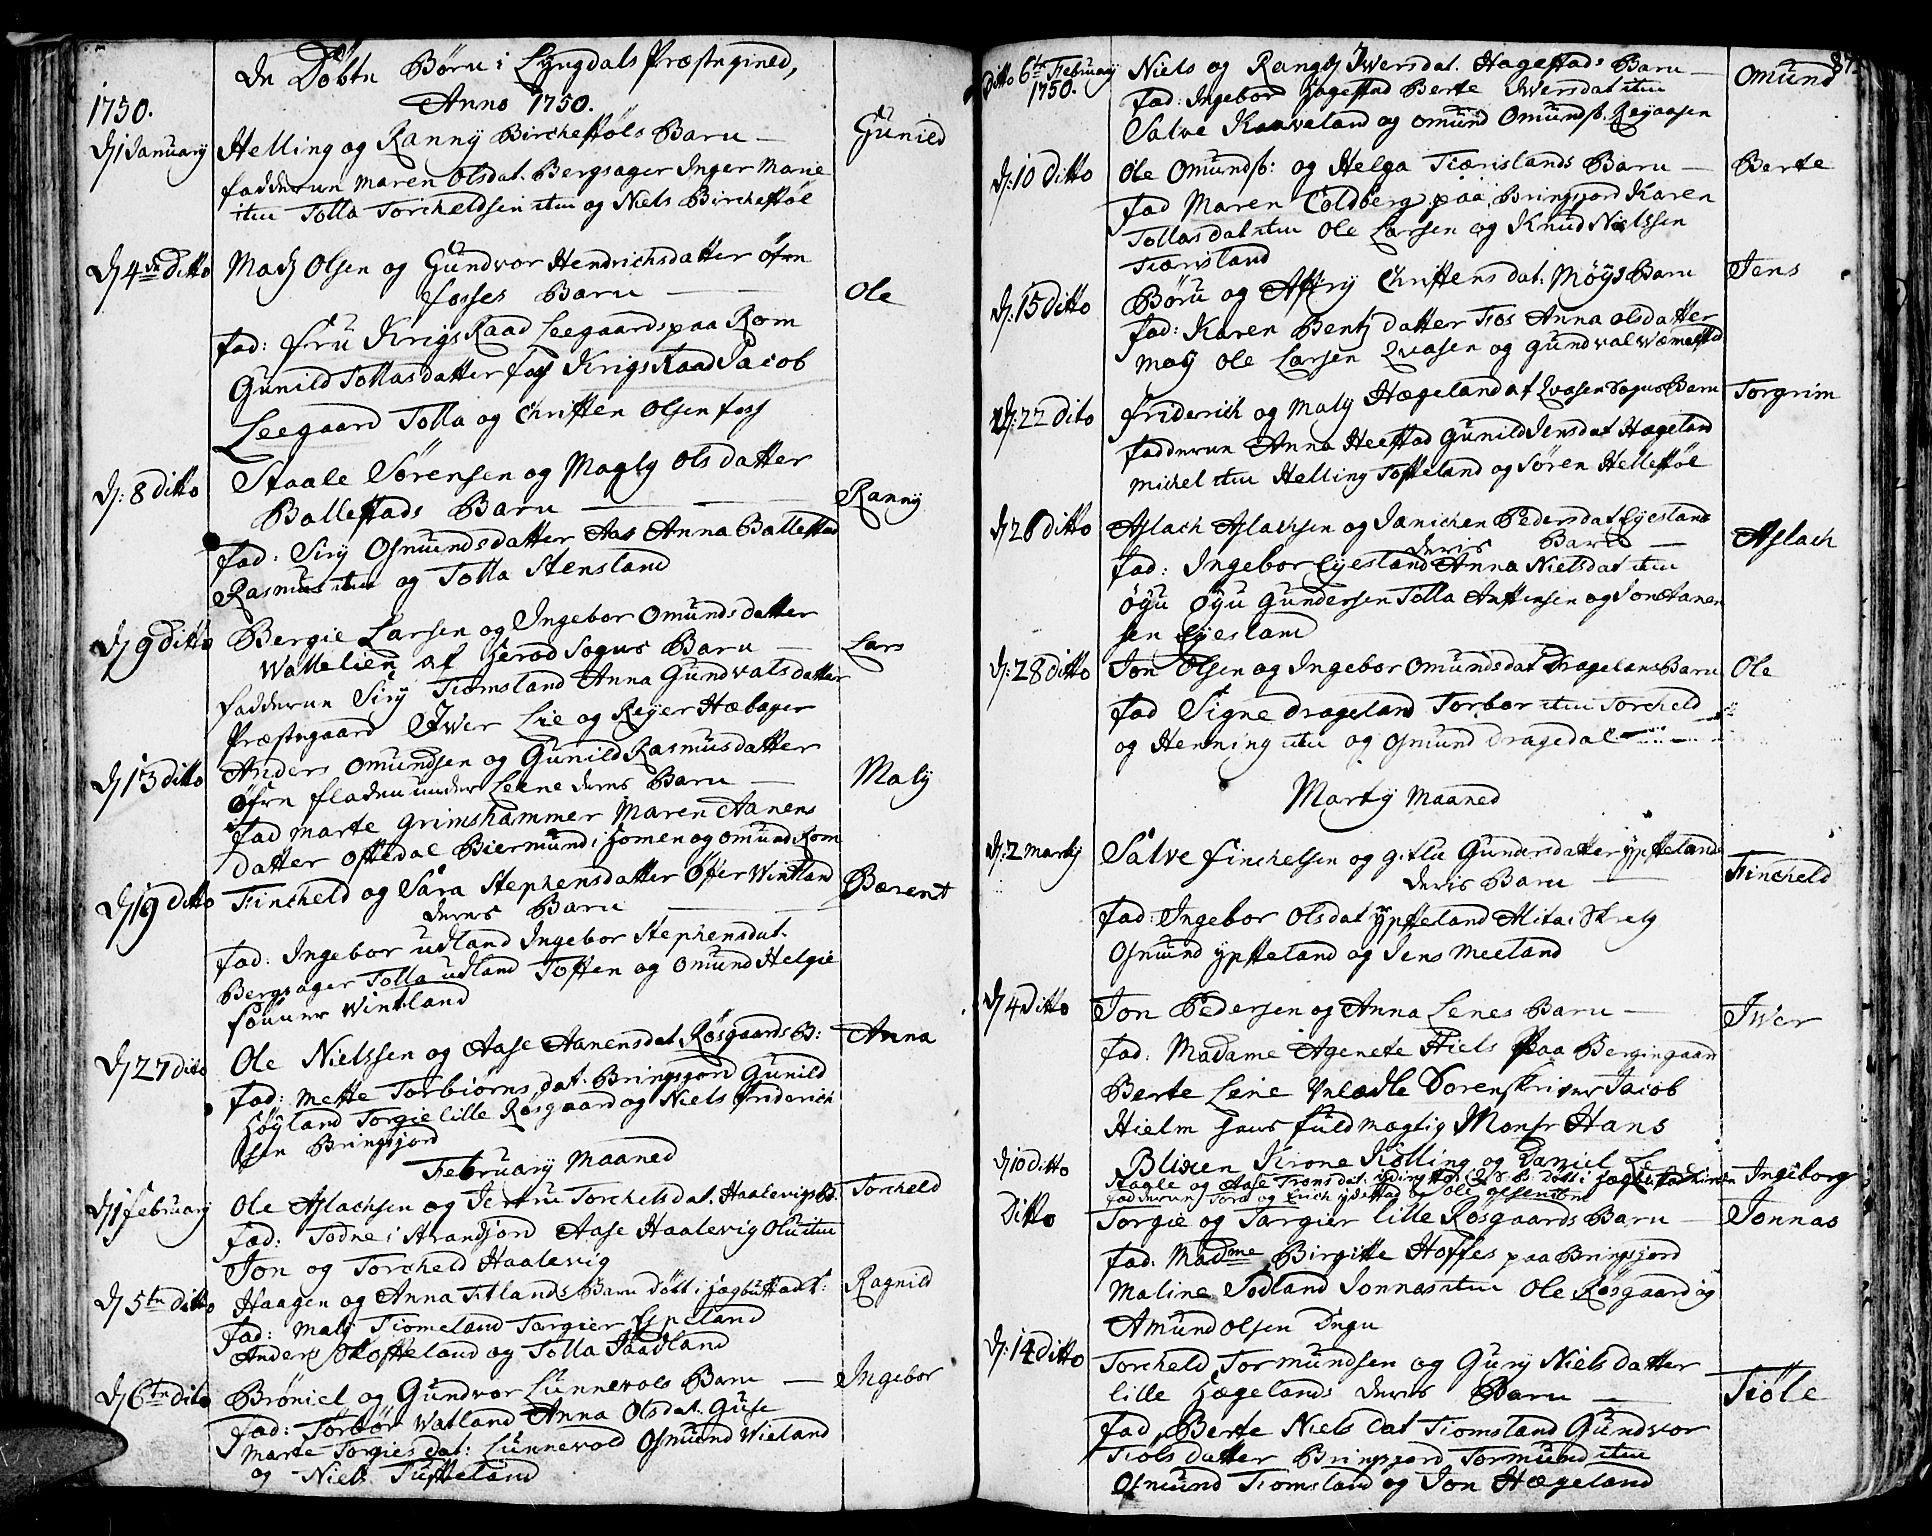 De Döbte Börn i Lyngdals Præstegield,
Anno 1750.
1750.
D 1 January Helling og Ranny Birchestöls Barn — Gunild
fadderne Maren Olsdat. Bergsager Inger Marie
item Tolla Torcheldsen item og Niels Bircheftöl
D 4de Ditto Mads Olsen og Gundvor Hendrichsdatter öfre
fosses Barn — Ole
fad: Fru Krigs Raad Leegaards paa Rom
Gunild Tollasdatter foss Krigs Raad Jacob
Leegaard Tolla og Christen Olsen foss
D: 8 ditto Staale Sörensen og Magly Olsdatter
Ballestads Barn — Ranny
fad: Siry Osmundsdatter Aas Anna Ballestad
Rasmus item og Tolla Stensland
D 9 Ditto Bergie Larsen og Ingebor Omundsdatter
Wattelien af Herod Sogns Barn — Lars
fadderne Siry Tiomsland Anna Gundvalsdatter
Præstegaard Iwer Lie og Reyer Hæbager
D 13 ditto Anders Omundsen og Gunild Rasmusdatter
Öfre fladen under Leene deres Barn — Maly
fad Marte Grimshammer Maren Aanens
datter Oftedal Biermund i Homen og Omund Rom
D 19 Ditto Fincheld og Sara Stephensdatter Öfer Wintland Bærent
deres Barn
fad: Ingebor Udland Ingebor Stephensdat.
Bergsager Tolla Udland Tosten og Omund Helgie
sönner Wintland
D 27 dito Ole Nielssen og Aase Aanensdat. Rösgaards B: Anna
fad: Mette Torbiörns dat. Bringsjord Gunild
Höyland Torgie lille Rösgaard og Niels Friderich
sen Bringsjord
February Maaned
D 1 february Ole Aslachsen og Jertru Torchelsdat. Haalevigs B. Torcheld
fad: Todne i Strandjord Aase Haalevig Ole item
Jon og Torcheld Haalevig
D 5te ditto Haagen og Anna Titlands Barn döbt i Hægbustad K: Ragnild
fad: Maly Tiomeland Targier Epeland
Anders Skofteland og Tolla Jaadland
D 6te dito Bröniel og Gundvor Lunnevols Barn — Ingebor
fad: Torbör Watland Anna Olsdat. Guse
Marte Torgiesdat: Lunnevold Osmund Wieland
og Niels Tufteland
87.
ditto 6te February 1750. Niels og Rangl Iwersdat. Hagestads Barn — Omund
fad: Ingebor Hagestad Berte Iwersdat item
Salve Kaaveland og Omund Omunds. Reyaasen
D: 10 Ditto Ole Omunds: og Helga Tiærislands Barn — Berte
fad Maren Coldberg paa Bringsjord Karen
Tollasdat item Ole Larsen og Knud Nielssen
Tiærisland
D: 15 Ditto Börn og Astry Christensdat. Möys Barn Jens
fad: Karen Bentz datter Fos Anna Olsdatter
Möy Ole Larsen Qvasen og Gundval Wæmestad
D: 22 dito Friderich og Maly Hægeland af Qvasen Sogns Barn Torgrim
fadderne Anna Heestad Gunild Jensdat Hægeland
Michel item Helling Tofteland og Sören Hellestöl
D 26 ditto Aslach Aslachsen og Janichen Pedersdat Eyesland
deres Barn — Aslach
fad: Ingebor Eyesland Anna Nielsdat item
Öyu Öyu Gundersen Tolla Anstensen og Jon Aanen
sen Eyesland
D: 28 ditto Jon Olsen og Ingebor Omundsdat Dragelans Barn Ole
fad Signe Drageland Torbor item Torcheld
og Henning item og Osmund Dragedal
Marty Maaned
D: 2 Marty Salve Finchelsen og Gitlu Gundersdatter Ypsteland
deres Barn — Fincheld
fad: Ingebor Olsdat Ypsteland Alita Skrely
Osmund Ypsteland og Jens Meeland
D 4 Ditto Jon Pedersen og Anna Lenes Barn — Iwer
fad: Madame Agenete Niels paa Bergingaar
Berte Lene Velædle Sorenskriver Jacob
Hielm hans fuldmægtig Monsr Hans
Blixen Krone Kölling og Daniel
D 10 ditto Stagle og Aase Tronsdat. döbt i Hægbustad Kirken Ingeborg
fadderne Tore og Erich og Ole Olsen item
Ditto Torgie og Targier lille Rösgaards Barn — Jonnas
fad. Madme Birgitte Hoffes paa Bringsjord
Maline Jodland Jonnas item Ole Rösgaard og
Amund Olsen Unge
D: 14 Ditto Torcheld Tormundsen og Gury Nielsdatter
lille Hægelands deres Barn — Tiöle
fad, Berte Niels dat Tiomsland Gundvor
Tiöls datter Bringsjord Tormund item
Osmund Tiomsland og Jon Hægeland